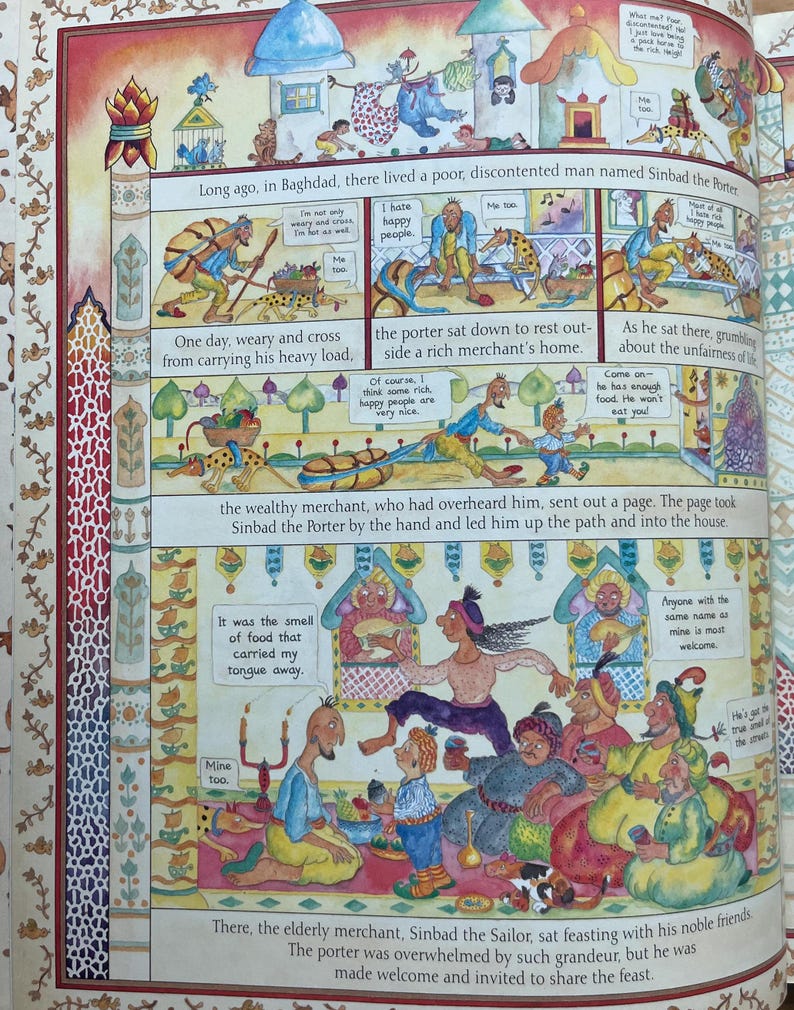 What me? Poor,
discontented? No!
I just love being
a pack horse to
the rich. Neigh!
Me
too.
Long ago, in Baghdad, there lived a poor, discontented man named Sinbad the Porter.
I'm not only
weary and cross,
I'm hot as well.
Me
too.
One day, weary and cross
from carrying his heavy load,
I hate
happy
people.
Me too.
the porter sat down to rest out-
side a rich merchant's home.
Most of all
I hate rich
happy people.
Me too.
As he sat there, grumbling
about the unfairness of life,
Of course, I
think some rich,
happy people are
very nice.
Come on—
he has enough
food. He won't
eat you!
the wealthy merchant, who had overheard him, sent out a page. The page took
Sinbad the Porter by the hand and led him up the path and into the house.
It was the smell
of food that
carried my
tongue away.
Mine
too.
Anyone with the
same name as
mine is most
welcome.
He's got the
true smell of
the streets.
There, the elderly merchant, Sinbad the Sailor, sat feasting with his noble friends.
The porter was overwhelmed by such grandeur, but he was
made welcome and invited to share the feast.